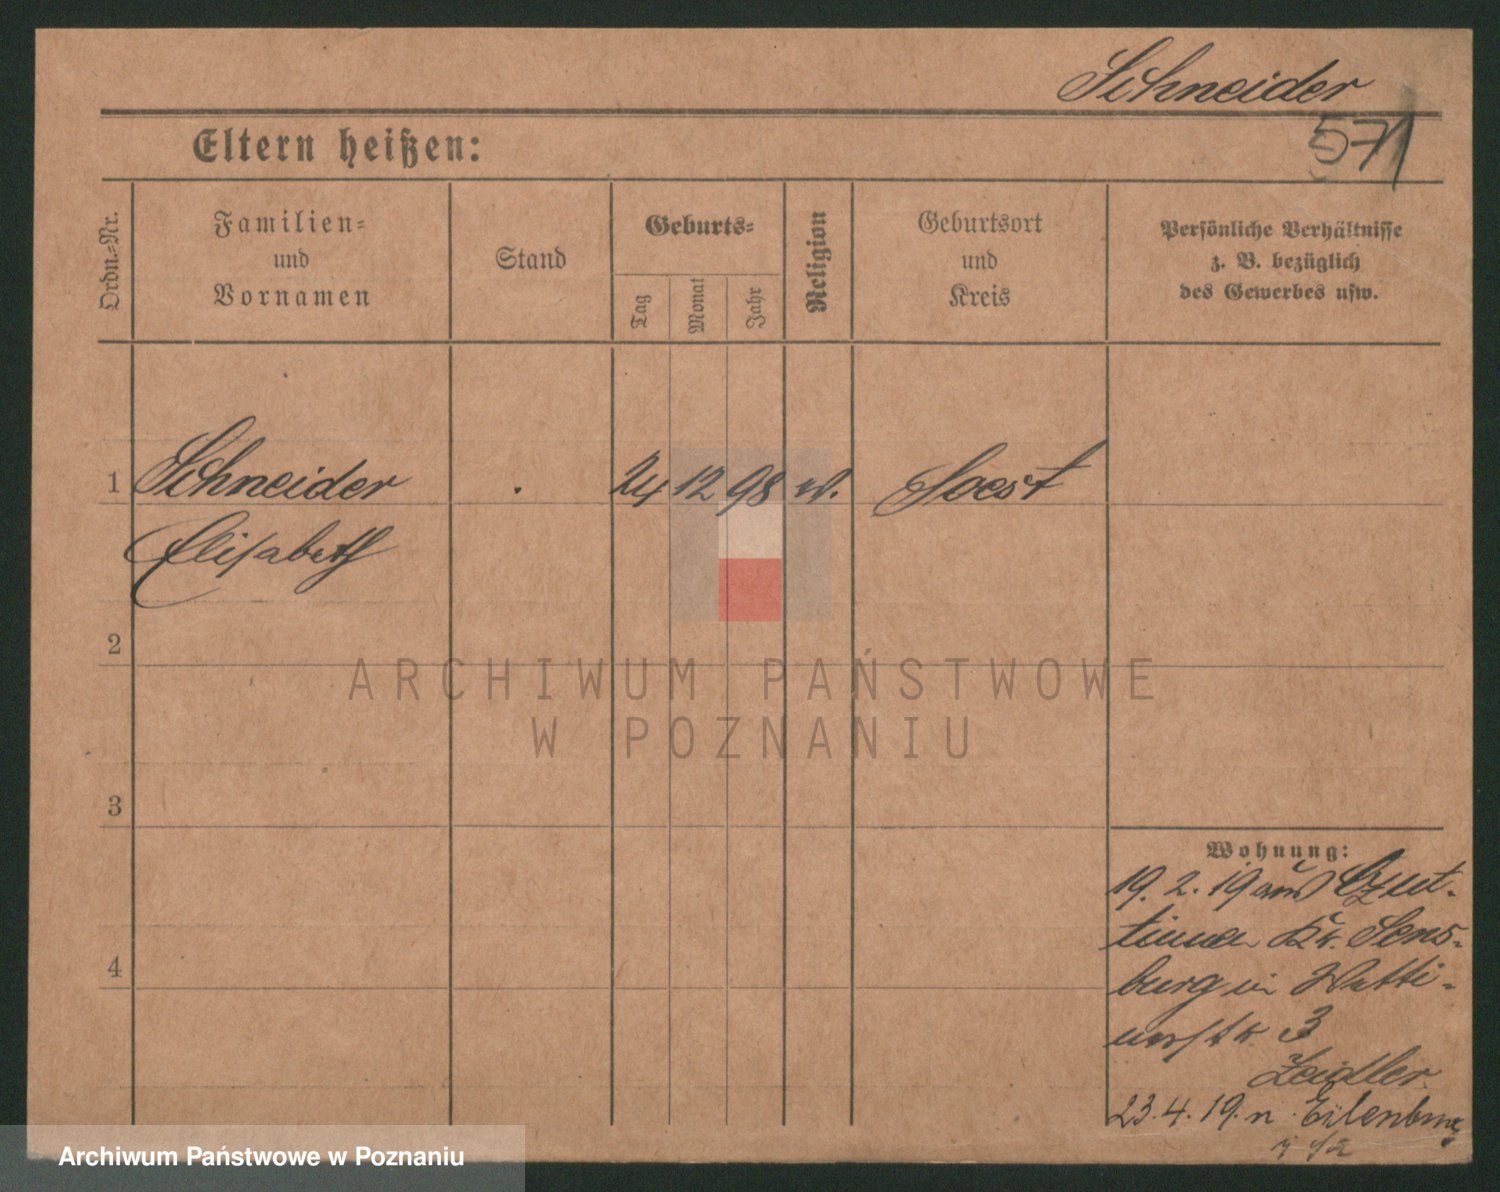 Schneider
571
Eltern heißen:
Ordn.-Nr.
Familien-
und
Vornamen
Stand
Geburts-
Tag
Monat
Jahr
Religion
Geburtsort
und
Kreis
Persönliche Verhältnisse
z. B. bezüglich
des Gewerbes usw.
1 Schneider . 24 12 98 w. Soest
Elisabeth
2
3
4
Wohnung:
19. 2. 19 aus
Kr. Sens-
burg in Watti-
3
Zeidler
23. 4. 19. n. Eilenburg
ARCHIWUM PAŃSTWOWE
W POZNANIU
Archiwum Państwowe w Poznaniu